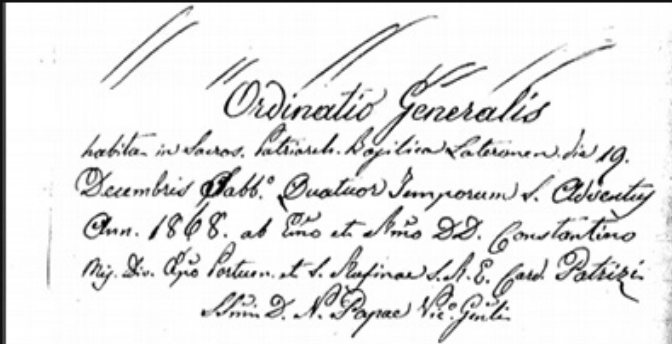 Ordinatio Generalis
habita in Sacros. Patriarch. Basilica Lateranen. die 19.
Decembris Sabb.º Quatuor Temporum S. Adventus
Ann. 1868. ab Emo et Rmo DD. Constantino
Mis. Div. Epo Portuen. et S. Rufinae S. R. E. Card. Patrizi
SSmi D. N. Papae Vic.º Gen̄li